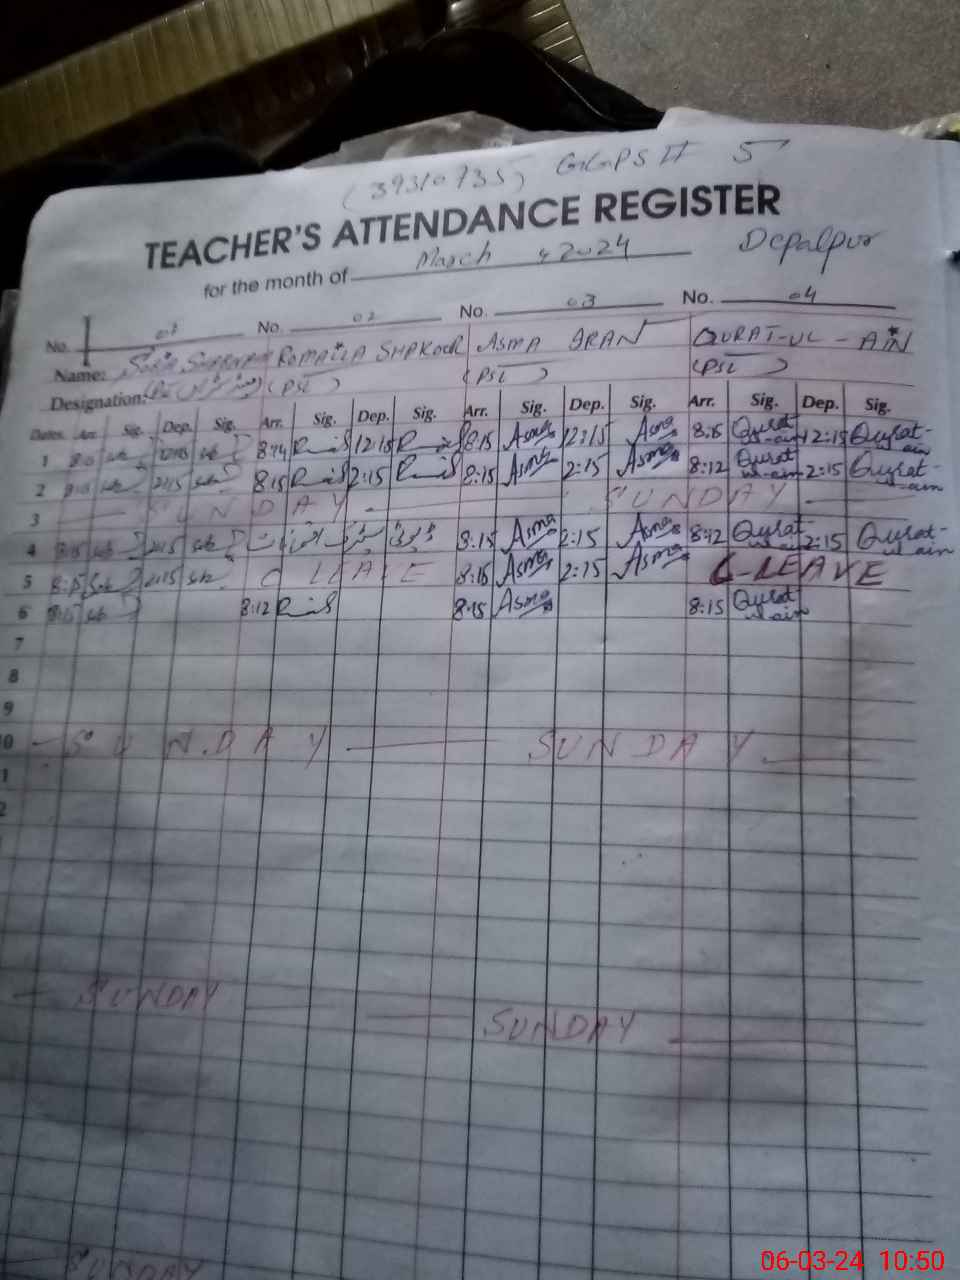 (39310735) GGPS II 5
TEACHER'S ATTENDANCE REGISTER
for the month of March 2024 Depalpur
No. 01 No. 02 No. 03 No. 04
Name: ROMAILA SHAKOOR ASMA IRAN QURAT-UL-AIN
Designation: (PST) (PST) (PST)
Dates Arr. Sig. Dep. Sig. Arr. Sig. Dep. Sig. Arr. Sig. Dep. Sig. Arr. Sig. Dep. Sig.
1 8:14 12:15 8:15 Asma 12:15 Asma 8:15 Qurat-ul-ain 12:15 Qurat-ul-ain
2 8:15 2:15 8:15 Asma 2:15 Asma 8:12 Qurat-ul-ain 2:15 Qurat-ul-ain
3 SUNDAY SUNDAY
4 8:15 2:15 8:15 Asma 2:15 Asma 8:12 Qurat-ul-ain 2:15 Qurat-ul-ain
5 8:15 2:15 C LEAVE 8:15 Asma 2:15 Asma C-LEAVE
6 8:15 8:12 8:15 Asma 8:15 Qurat-ul-ain
7
8
9
0 SUNDAY SUNDAY
1
2
SUNDAY
SUNDAY
SUNDAY
06-03-24 10:50